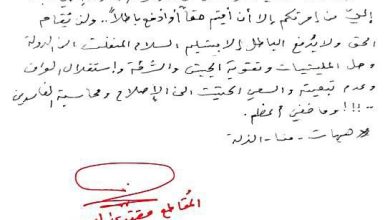 إليّ من إمرتكم إلا أن أقيم حقاً أو أدفع باطلاً.. ولن يُقام
الحق ولا يُدفع الباطل إلا بتسليم السلاح المنفلت الى الدولة
وحل المليشيات وتقوية الجيش والشرطة وإستقلال العراق
وعدم تبعيته والسعي الحثيث الى الإصلاح ومحاسبة الفاسدين
..!!! وما خفي أعظم.
هيهات - منا - الذلة
المُقاطِع